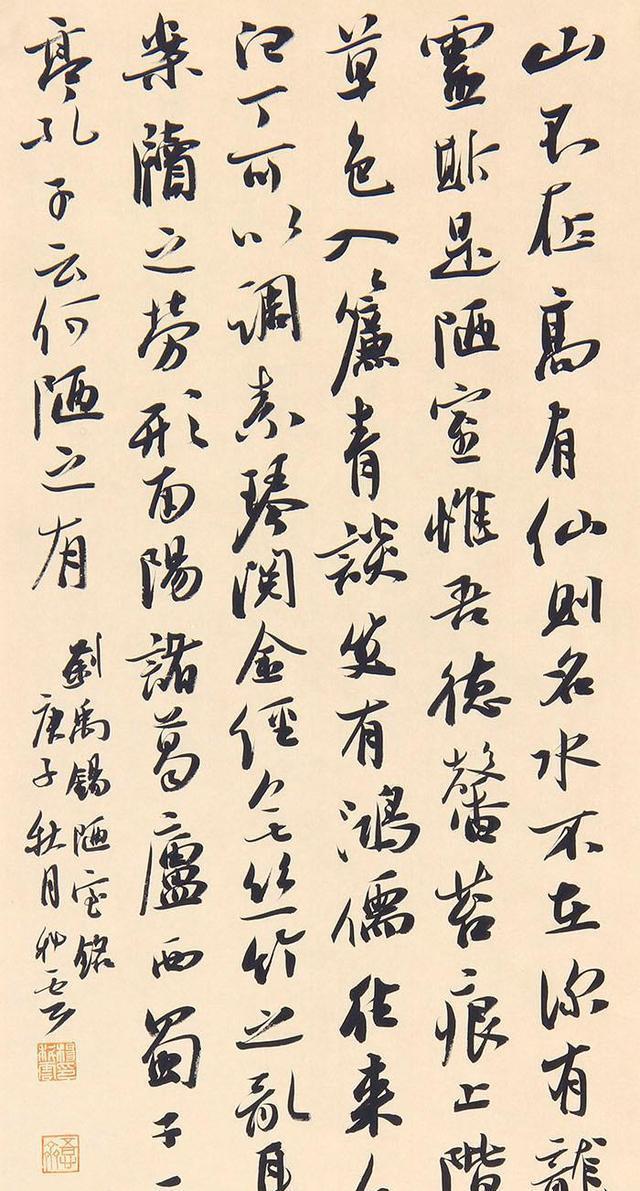 山不在高有仙則名水不在深有龍
靈斯是陋室惟吾德馨苔痕上階
草色入簾青談笑有鴻儒往来
白丁可以調素琴閱金經無絲竹之亂耳
案牘之勞形南陽諸葛廬西蜀子
亭孔子云何陋之有
劉禹錫陋室銘
庚子秋月